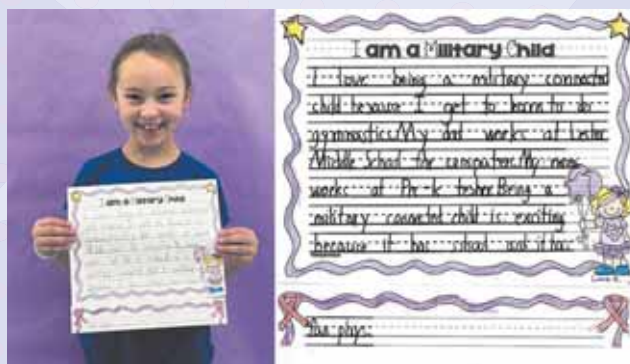 I am a Military Child
I love being a military connected
child because I get to learn to do
gymnastics. My dad works at Lester
Middle School the computers. My mom
works at Pre-k tesher. Being a
military connected child is exciting
because it has school and it has
fun phys.
I am a Military Child